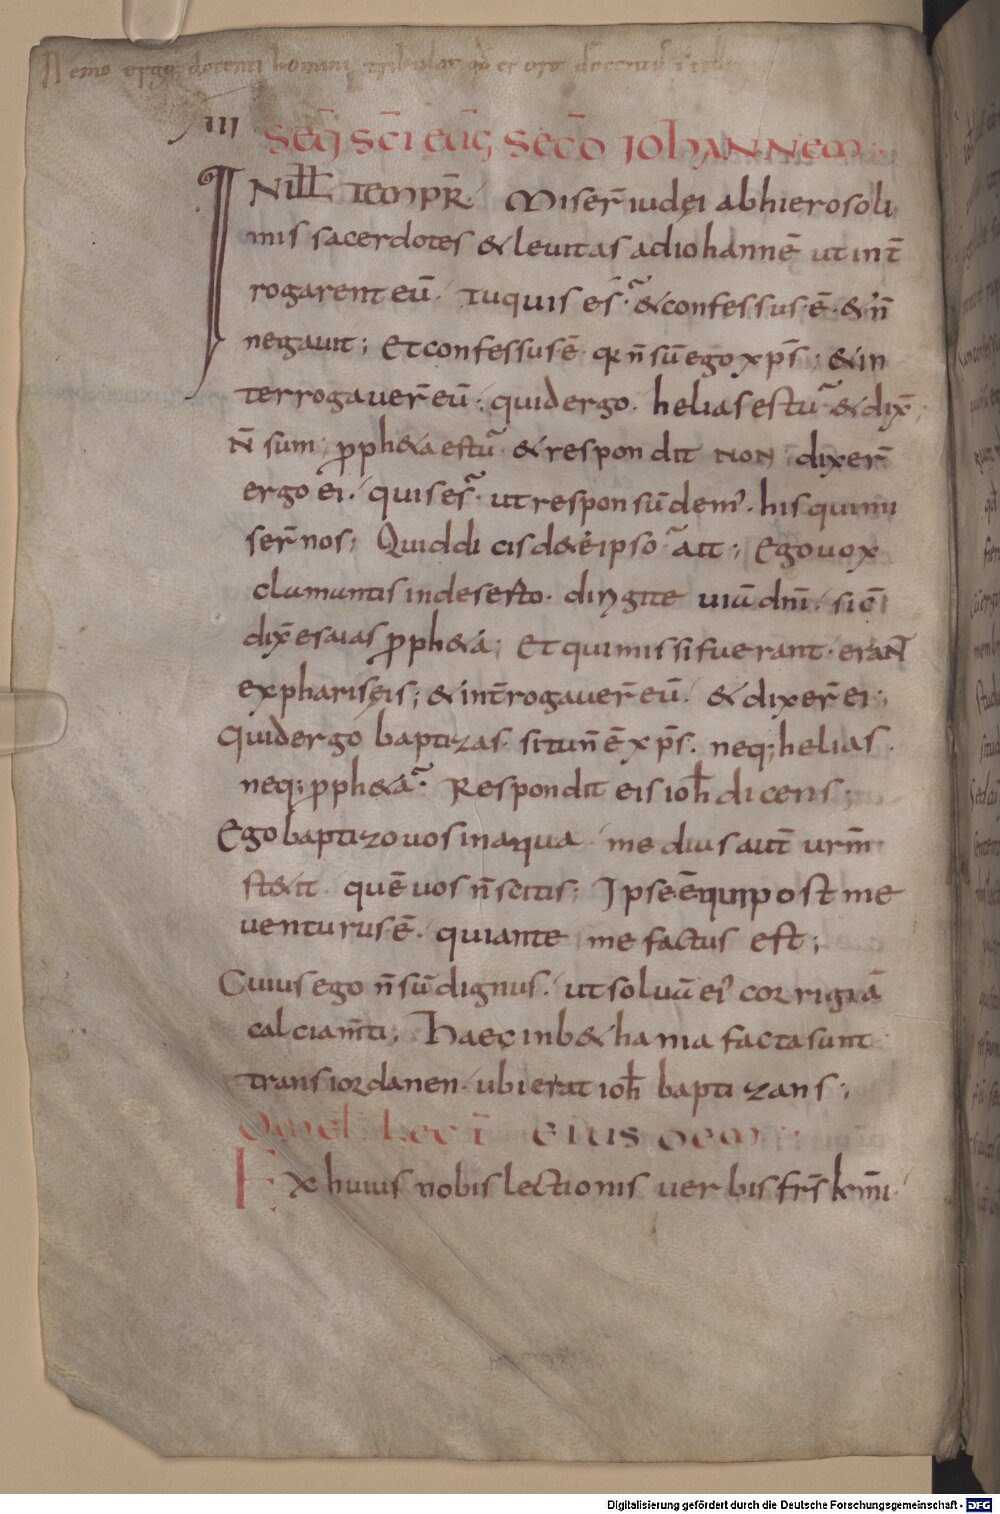 Nemo ergo docenti homini tribuat qd ex ore docentis
IIII
SEQ̄ SC̄I EUḠ SECD̄ IOHANNEM
IN ILL̄ TEMPR̄. Miser̄ iudęi abhierosoli
mis sacerdotes & leuitas adiohannē ut int̄
rogarent eū. Tu quis es. & confessus ē. & n̄
negauit; Et confessus ē. q̄ n̄ sū ego xp̄s; & in
terrogauer̄ eū; quid ergo. helias es tu & dix̄
N̄ sum; proph&a es tu & respondit NON dixer̄
ergo ei. quis es. ut responsū dem'. his qui mi
ser̄ nos; Quid dicis de te ipso ait; Ego uox
clamantis in deserto. dirigite uiā dn̄i. sic̄
dix̄ esaias proph&a; Et qui missi fuerant. eraNT
ex phariseis; & int̄rogauer̄ eū. & dixer̄ ei;
Quid ergo baptizas. si tu n̄ ē xp̄s. neq; helias.
neq; proph&a. Respondit eis ioh̄ dicens;
Ego baptizo uos in aqua medius aut̄ urm̄
st&it quē uos n̄ scitis; Ipse ē qui post me
uenturus ē. qui ante me factus est;
Cuius ego n̄ sū dignus. ut soluā ei' corrigiā
calciam̄ti; Haec in b&hania facta sunt
trans iordanen. ubi erat ioh̄ baptizans;
OMEL̄ LEC̄T EIUSDEM
Ex huius nobis lectionis uerbis fr̄s km̄i.
Digitalisierung gefördert durch die Deutsche Forschungsgemeinschaft - DFG